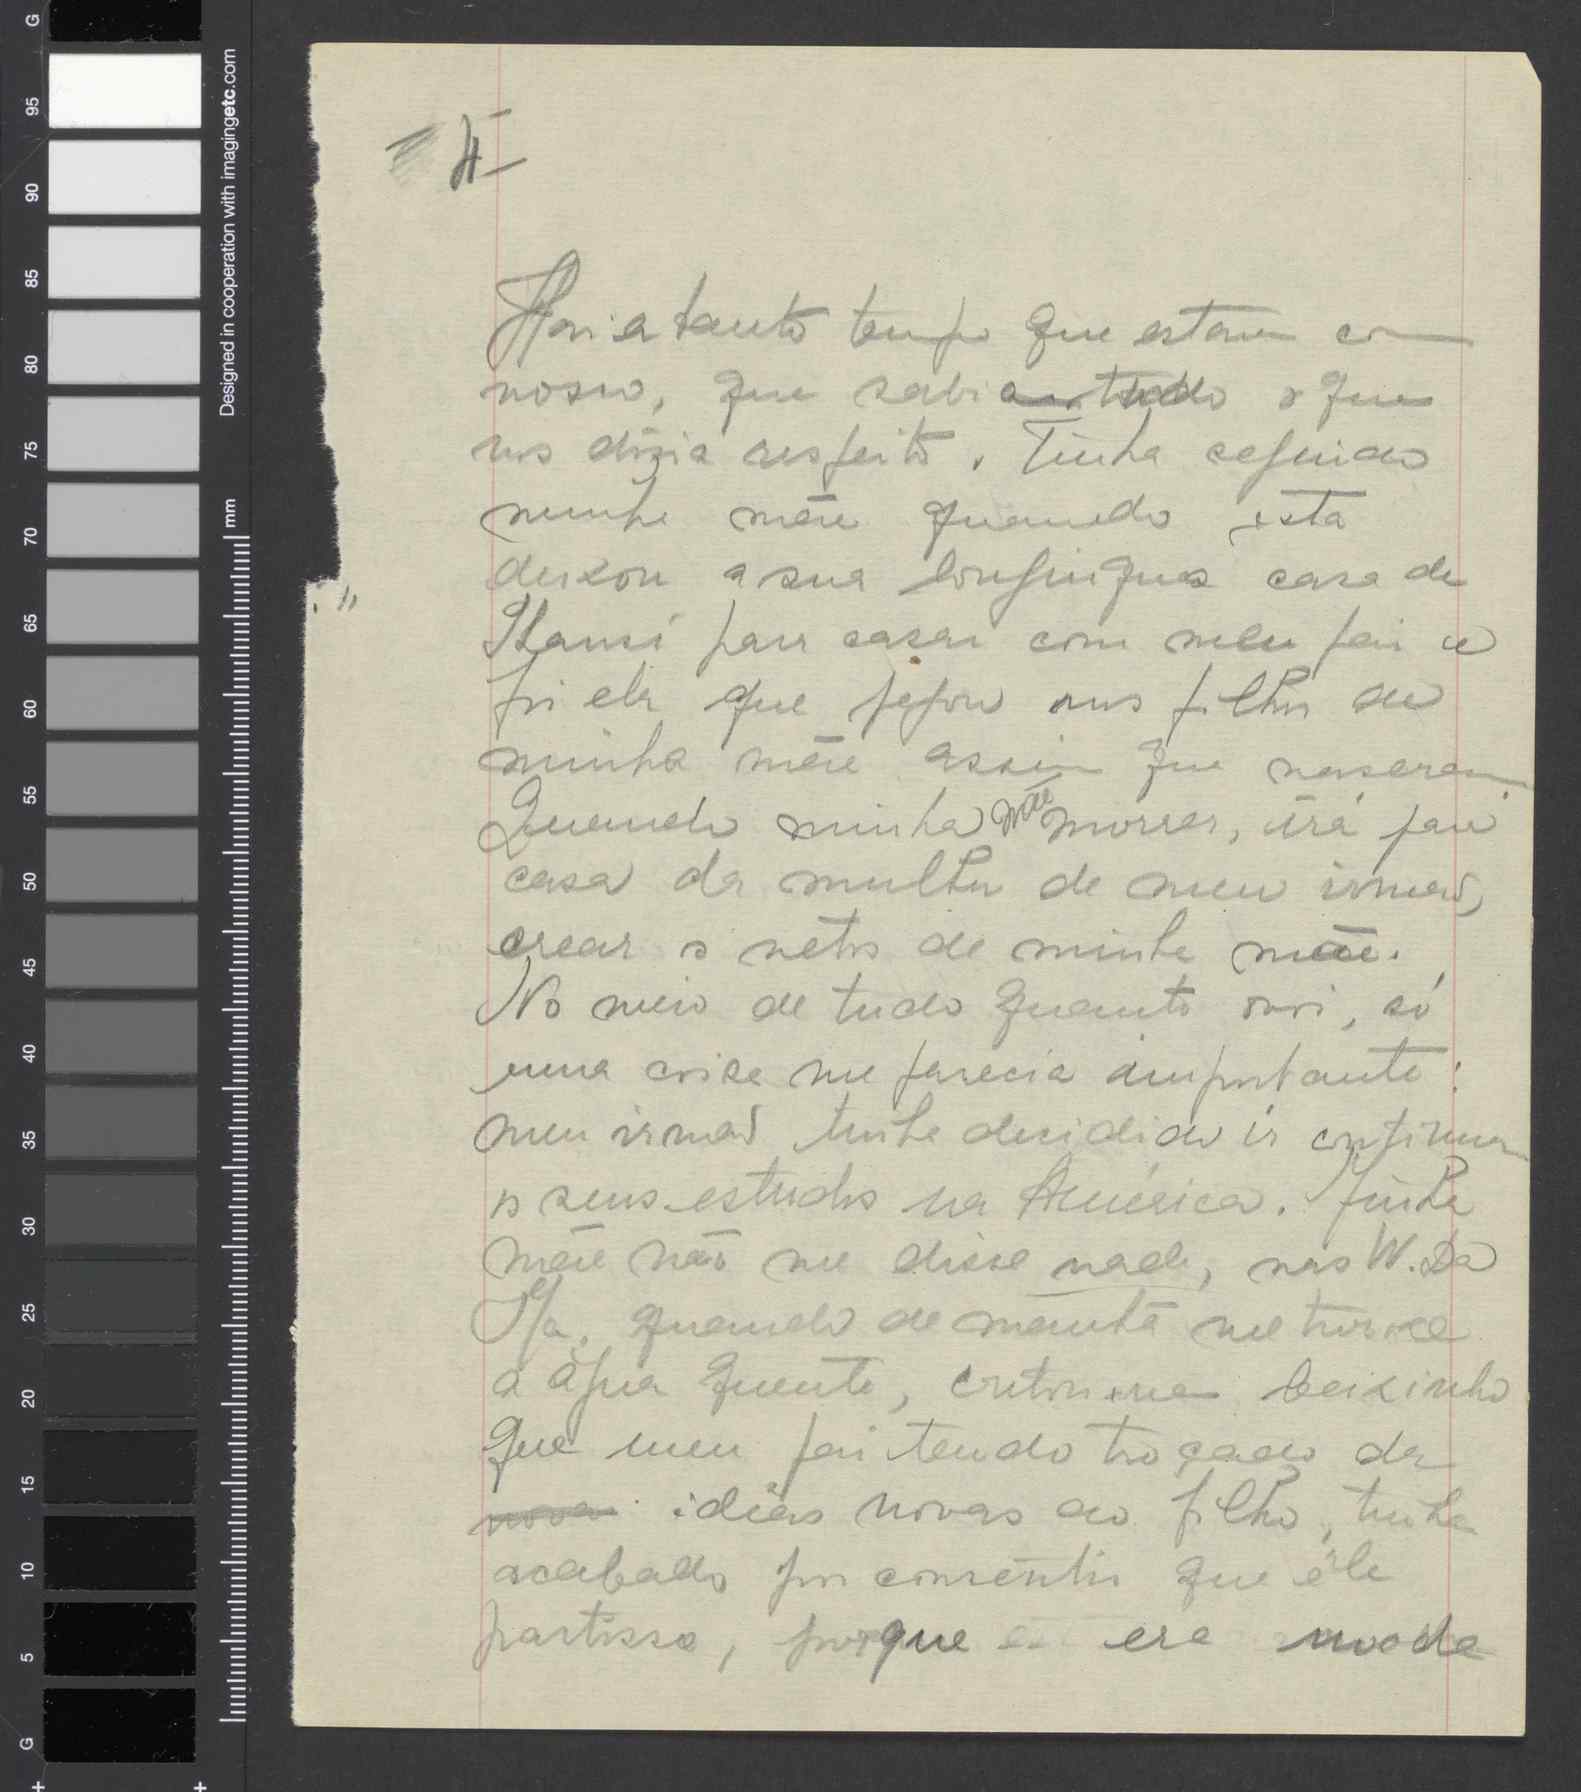 G
95
90
85
80
75
70
65
60
55
50
45
40
35
30
25
20
15
10
5
G
Designed in cooperation with imagingetc.com
mm
II
Havia tanto tempo que estava co
nosco, que sabia tudo o que
nos dizia respeito. Tinha seguido
minha mãe quando esta
deixou a sua longinqua casa de
Kansú para casar com meu pai e
foi ela que pegou nos filhos de
minha mãe assim que nasceram.
Quando minha mãe morrer, irá para
casa da mulher de meu irmão,
crear os netos de minha mãe.
No meio de tudo quanto ouvi, só
uma coisa me parecia importante:
meu irmão tinha decidido ir continuar
os seus estudos na América. Minha
mãe não me disse nada, mas W. Da
Ma, quando de manhã me trouxe
a água quente, contou-me baixinho
que meu pai tendo troçado da
nova idéias novas do filho, tinha
acabado por consentir que êle
partisse, porque era moda